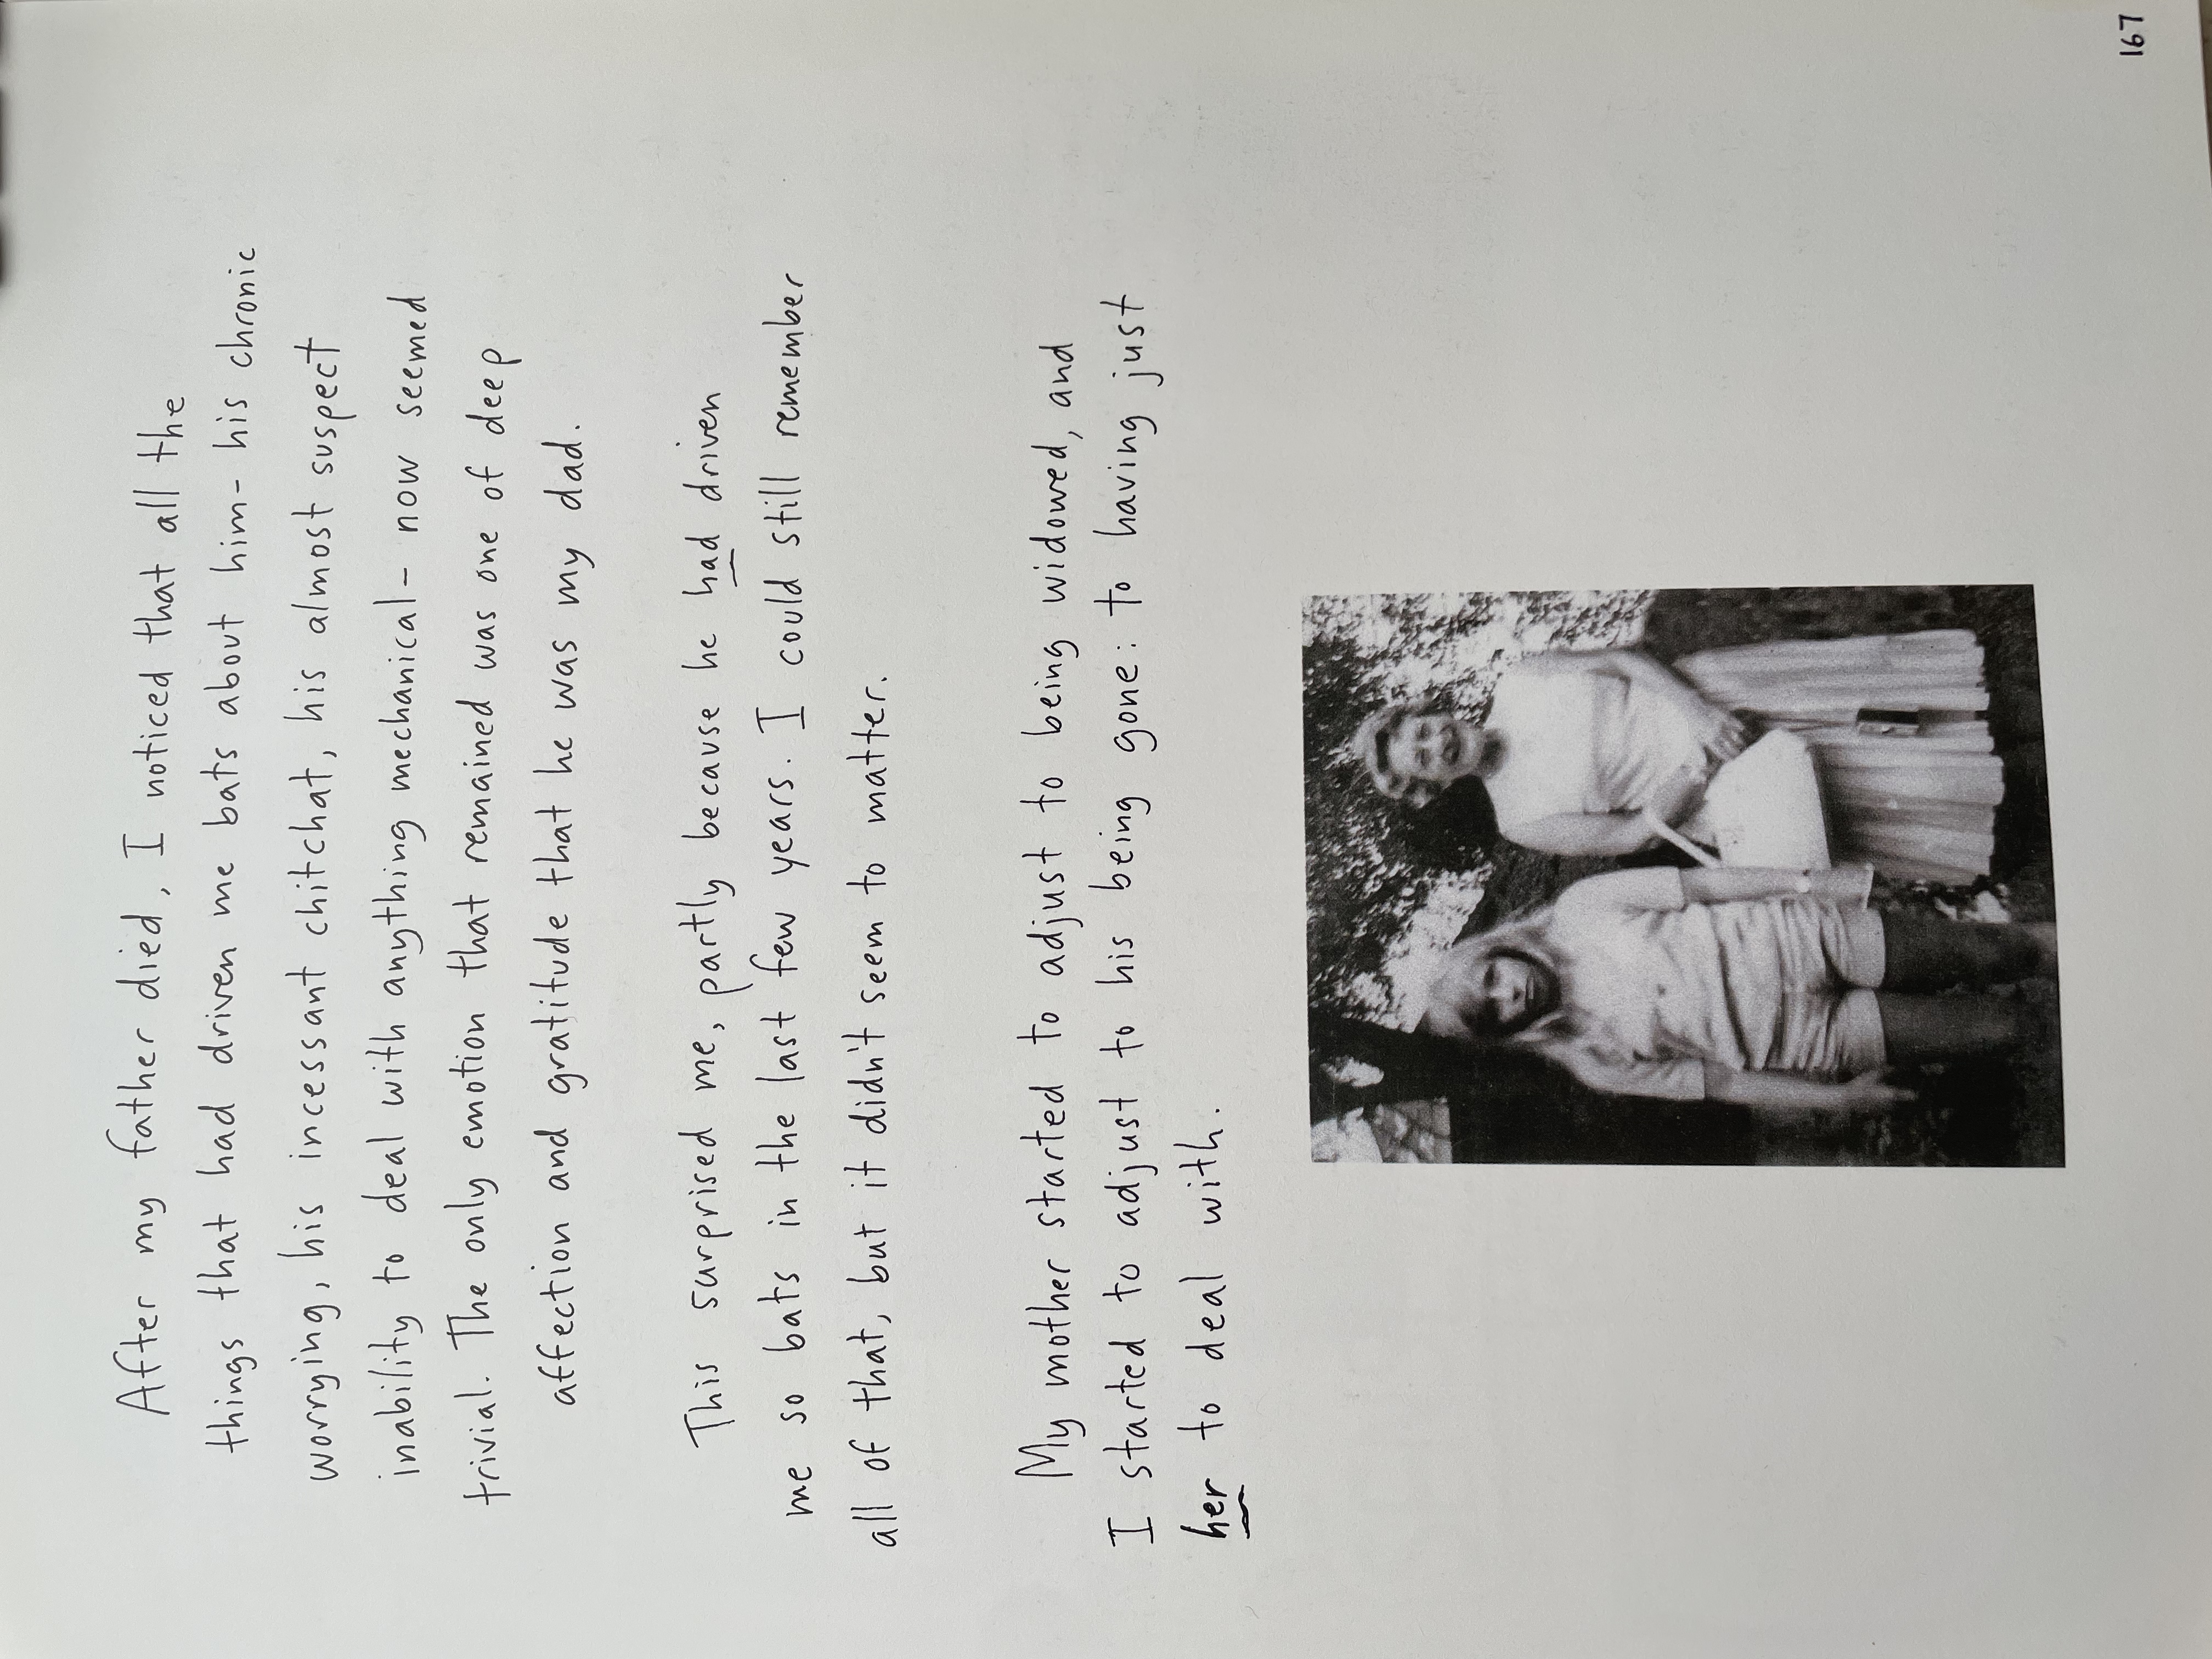 After my father died, I noticed that all the
things that had driven me bats about him- his chronic
worrying, his incessant chitchat, his almost suspect
inability to deal with anything mechanical- now seemed
trivial. The only emotion that remained was one of deep
affection and gratitude that he was my dad.
This surprised me, partly because he had driven
me so bats in the last few years. I could still remember
all of that, but it didn't seem to matter.
My mother started to adjust to being widowed, and
I started to adjust to his being gone: to having just
her to deal with.
167